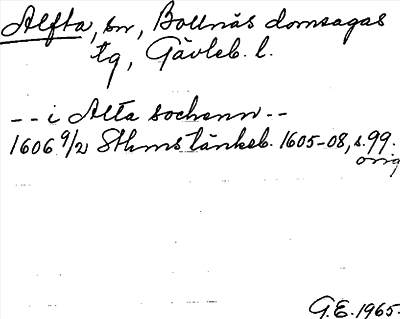 Alfta, sn, Bollnäs domsagas
tg, Gävleb. l.
-- i Alta sochenn --
1606 9/2 Sthmstänkeb. 1605-08, s. 99.
orig
G.E. 1965.